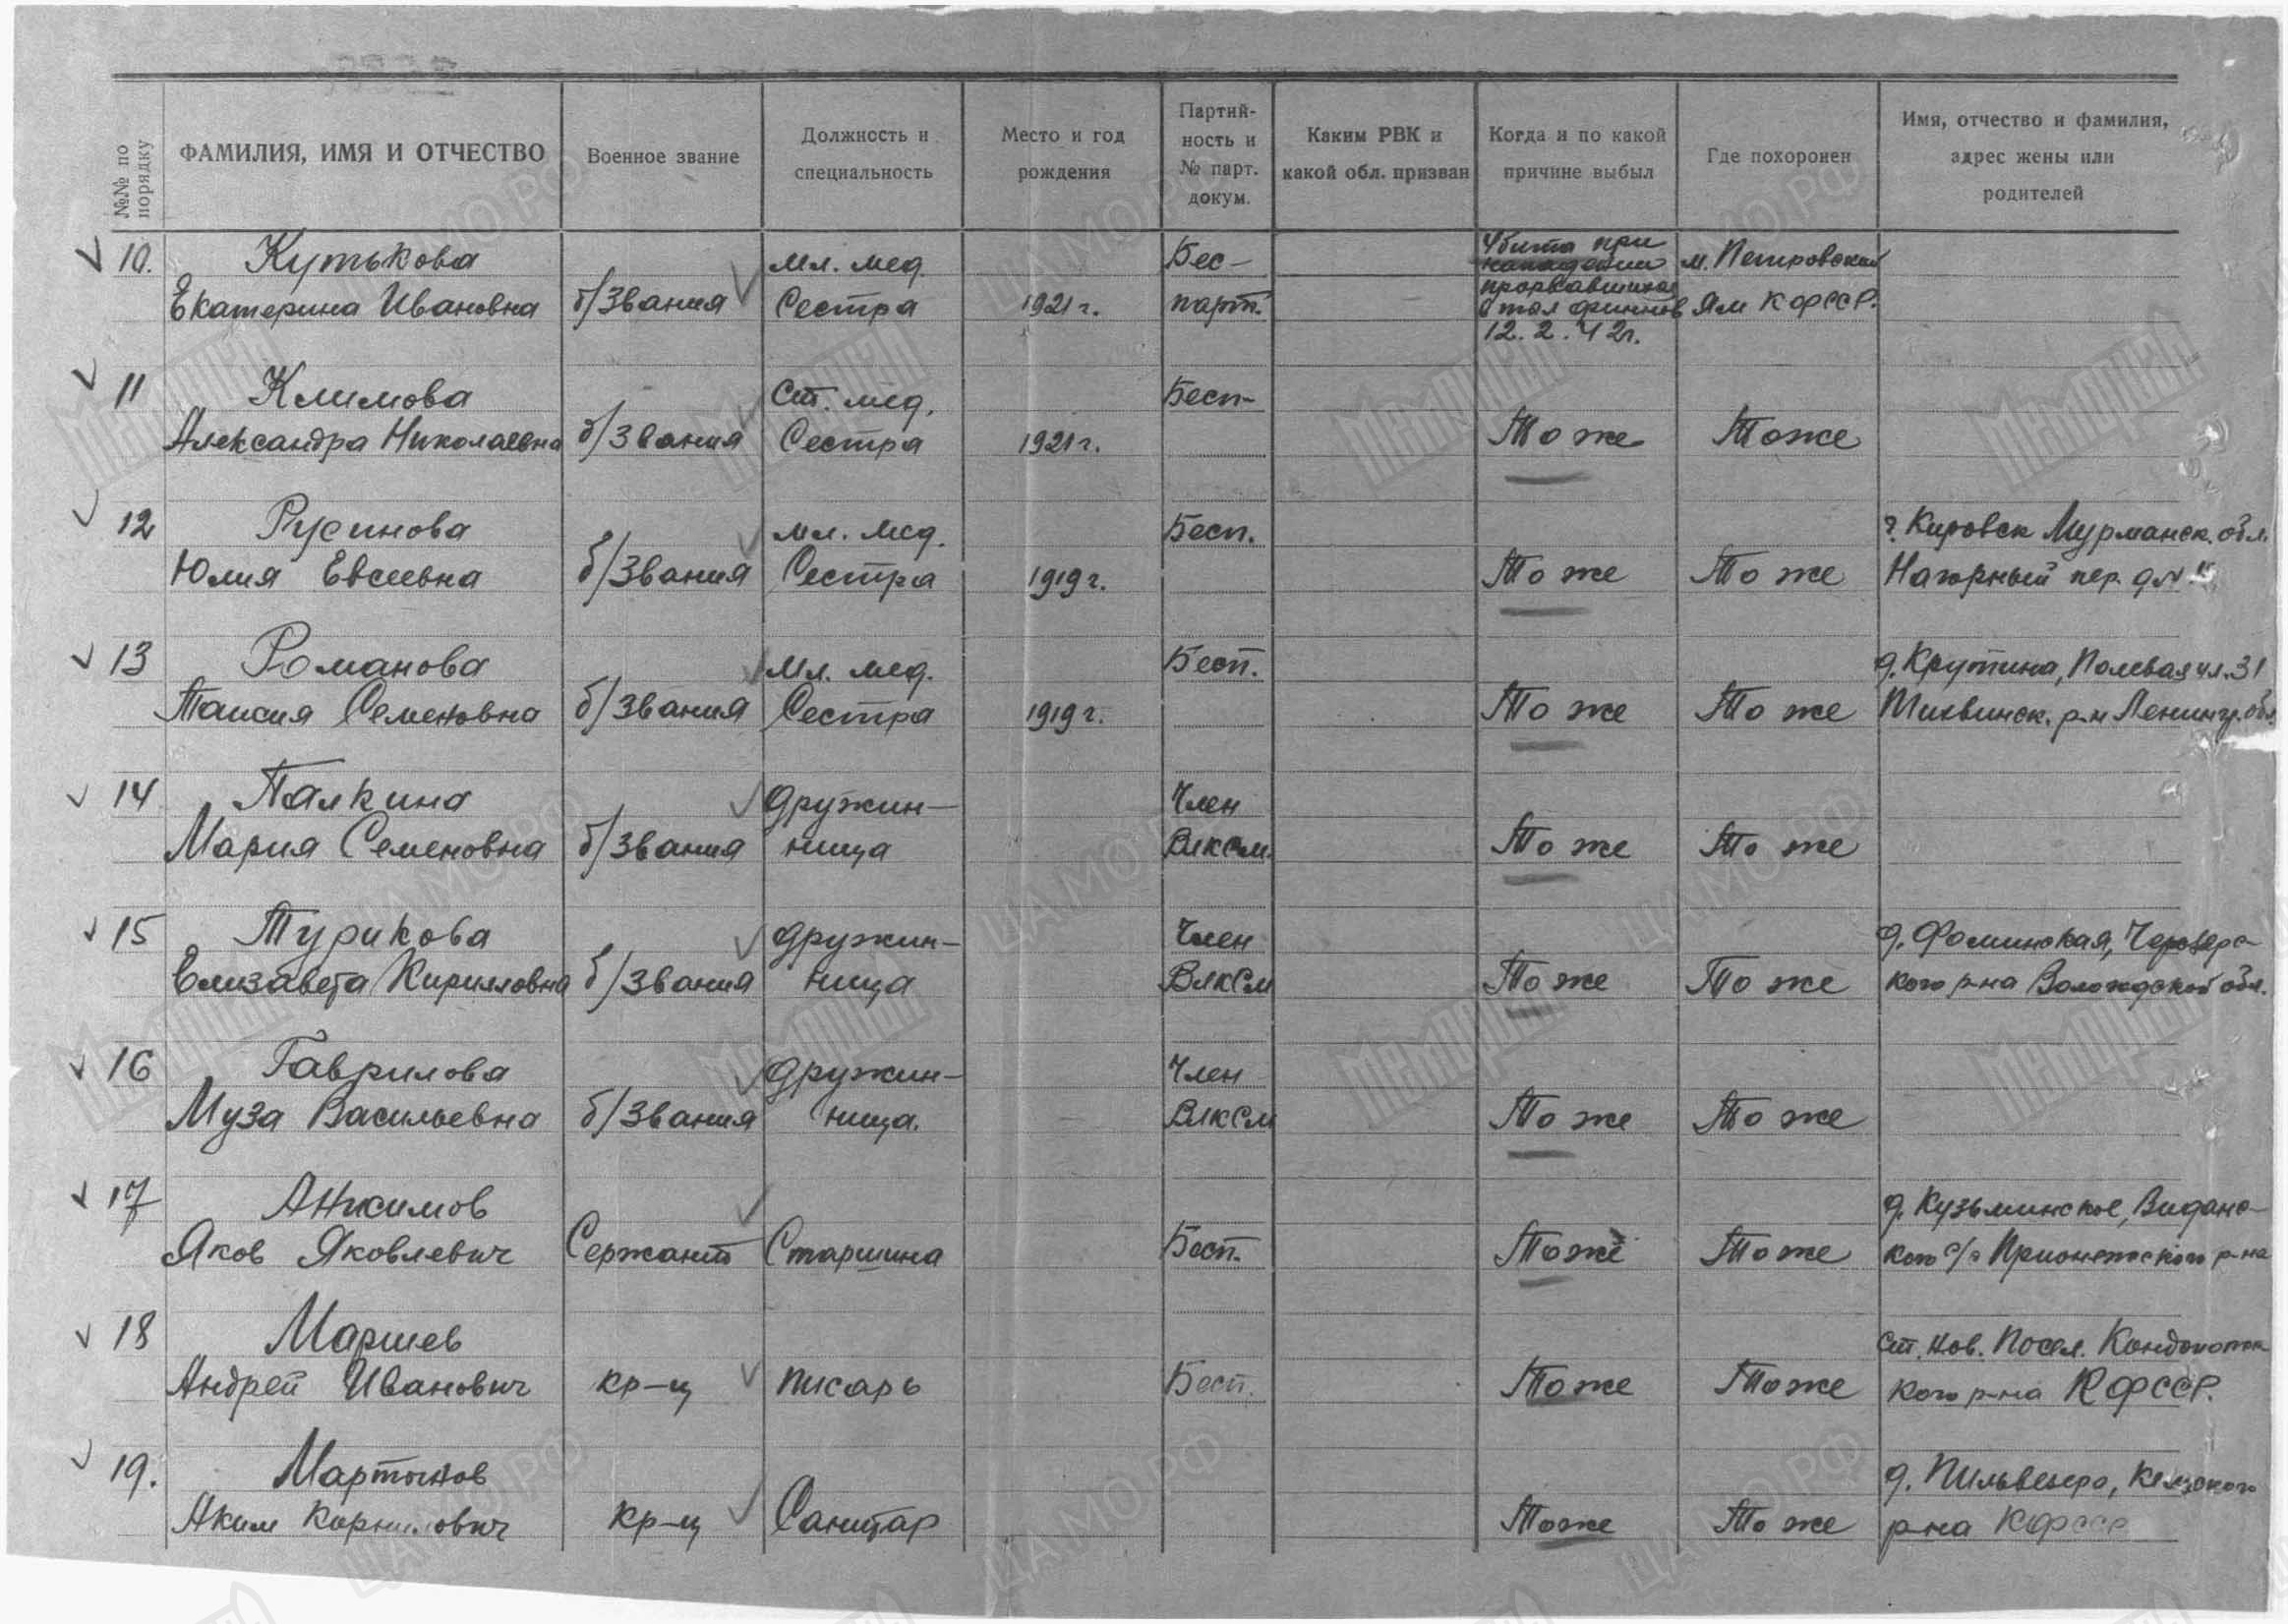 №№ по порядку
ФАМИЛИЯ, ИМЯ И ОТЧЕСТВО
Военное звание
Должность и специальность
Место и год рождения
Партий-
ность и
№ парт.
докум.
Каким РВК и
какой обл. призван
Когда и по какой
причине выбыл
Где похоронен
Имя, отчество и фамилия,
адрес жены или
родителей
10. Кутькова мл. мед. Бес- Убита при м. Петровский
Екатерина Ивановна б/звания Сестра 1921 г. парт. нападении прорвавшихся в тыл финнов Ям КФССР.
12.2.42г.
11 Климова Ст. мед. Бесп-
Александра Николаевна б/звания Сестра 1921 г. То же То же
12 Русинова мл. мед. Бесп. г. Кировск Мурманск. обл.
Юлия Евсеевна б/звания Сестра 1919 г. То же То же Нагорный пер. д №
13 Романова мл. мед. Бесп. д. Крутина, Полевая ул. 31
Таисия Семеновна б/звания Сестра 1919 г. То же То же Тихвинск. р-н Ленингр. обл.
14 Палкина дружин- Член
Мария Семеновна б/звания ница ВЛКСМ То же То же
15 Турикова дружин- Член д. Фоминская,
Елизавета Кирилловна б/звания ница ВЛКСМ То же То же кого р-на Вологодской обл.
16 Гаврилова дружин- Член
Муза Васильевна б/звания ница. ВЛКСМ То же То же
17 Анхимов д. Кузьминское, Виданс-
Яков Яковлевич Сержант Старшина Бесп. То же То же кого с/с Прионежского р-на
18 Маршев ст. Нов. Посел. Кондопож
Андрей Иванович кр-ц писарь Бесп. То же То же кого р-на КФССР.
19. Мартынов д.
Аким Корнилович кр-ц Санитар То же То же р-на КФССР
Мемориал
ЦА МО РФ